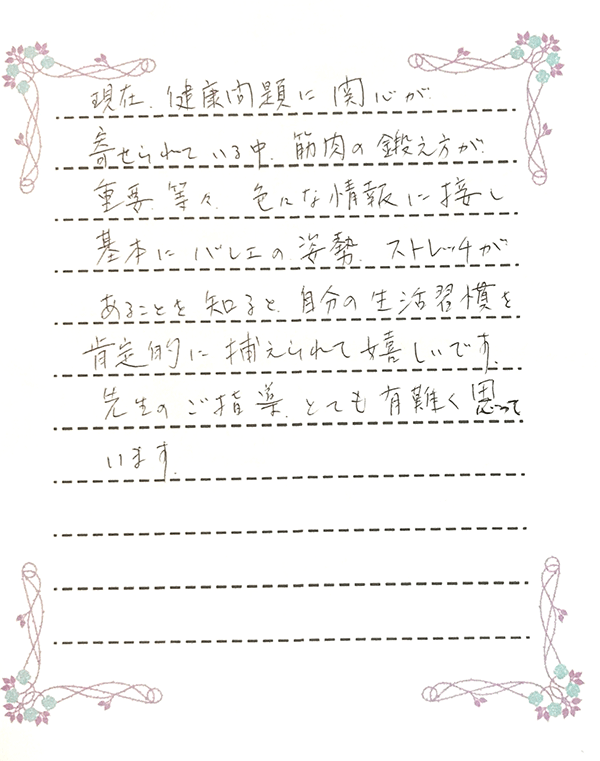 現在、健康問題に関心が
寄せられている中、筋肉の鍛え方が
重要、等々、色々な情報に接し
基本にバレエの姿勢、ストレッチが
あることを知ると、自分の生活習慣を
肯定的に捕えられて嬉しいです。
先生のご指導、とても有難く思って
います。